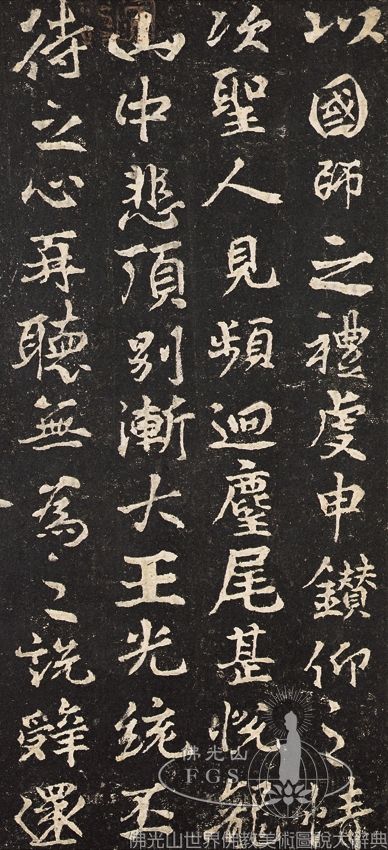 以國師之禮虔申鑽仰之情
次聖人見頻迴麈尾甚悅龍
山中悲頂別漸大王光統丕
待之心再聽無為之說辭還
佛光山
FGS
佛光山世界佛教美術圖說大辭典